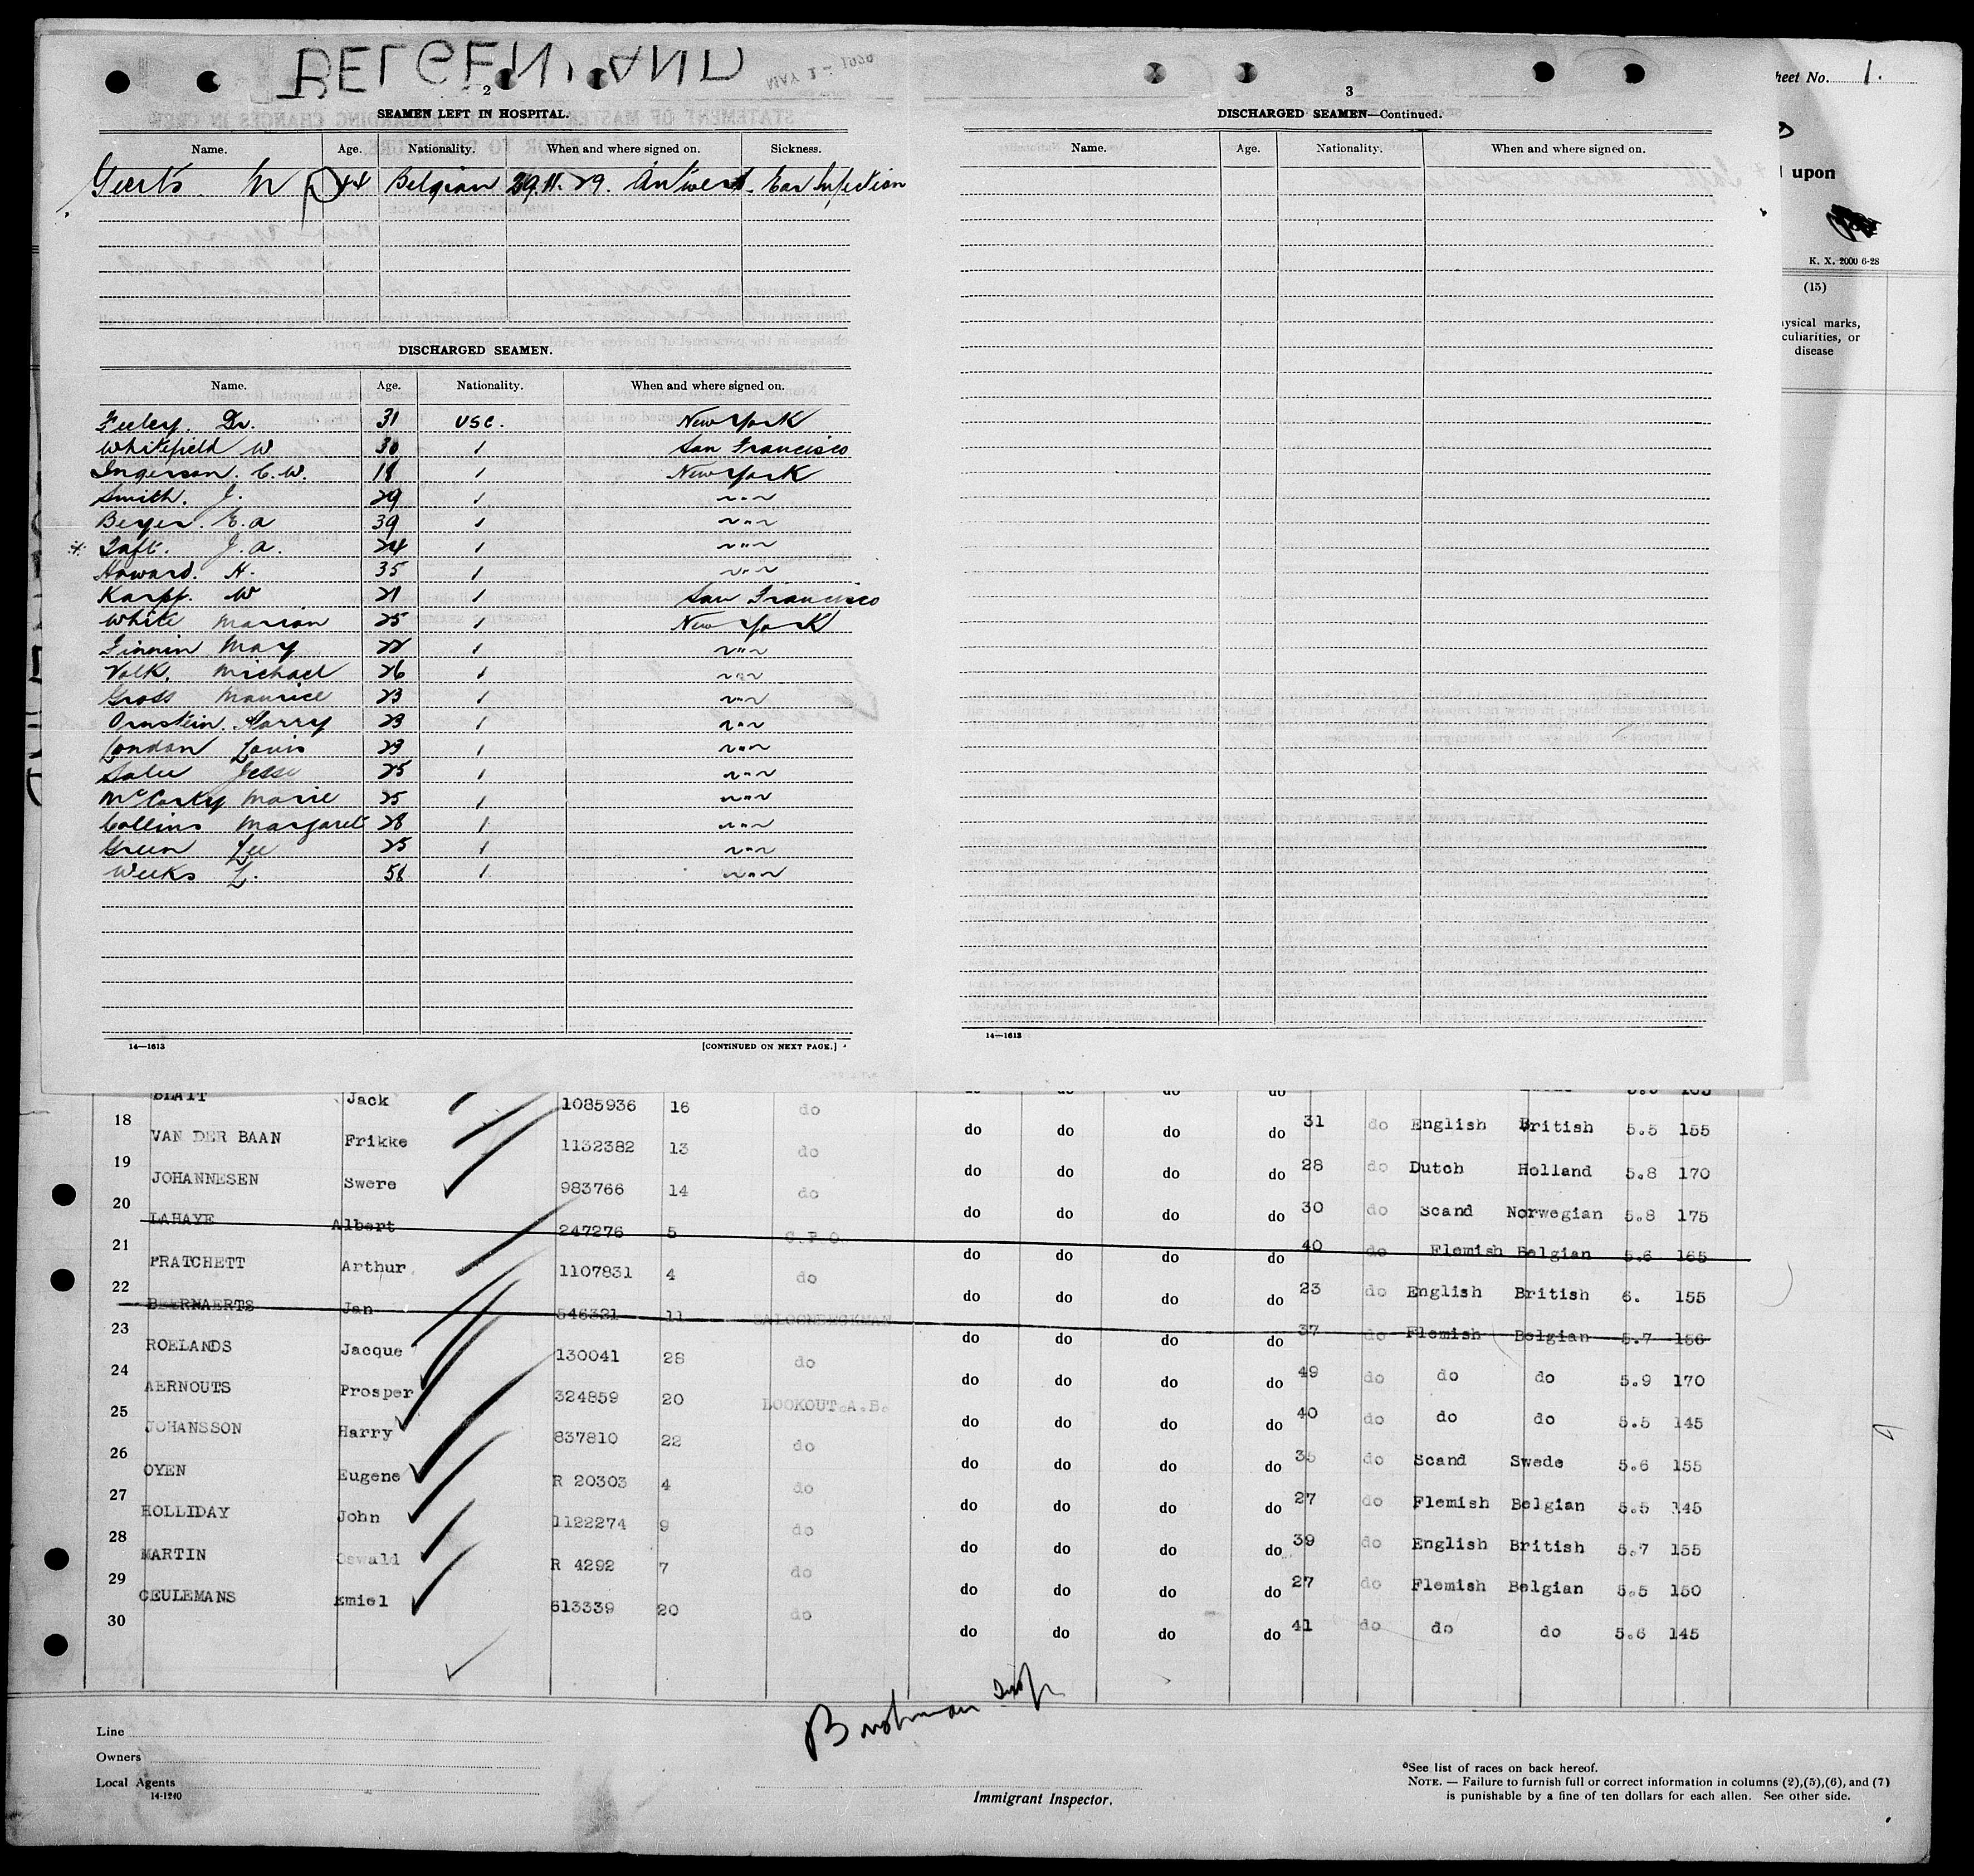 BELGENLAND
MAY - 1 1930
2
SEAMEN LEFT IN HOSPITAL.
Name. Age. Nationality. When and where signed on. Sickness.
Geerts. M 44 Belgian 29.11.29. Antwerp. Ear Infection
DISCHARGED SEAMEN.
Name. Age. Nationality. When and where signed on.
Feeley. Dr. 31 USC. New York
Whitefield W 30 " San Francisco
Ingerson. C.W. 18 " New York
Smith. J. 29 " "
Beyer. E.A 39 " "
Taft. J.A. 24 " "
Howard. H. 35 " "
Karpf. W 21 " San Francisco
White Marion 25 " New York
Finnin May 22 " "
Volk. Michael 26 " "
Gross Maurice 23 " "
Ornstein. Harry 23 " "
London Louis 23 " "
Jesse 25 " "
McCarky Marie 25 " "
Collins Margaret 28 " "
Green Lee 25 " "
Weeks L. 58 " "
14—1613 [CONTINUED ON NEXT PAGE.]
3
DISCHARGED SEAMEN—Continued.
Name. Age. Nationality. When and where signed on.
14—1613
heet No. 1.
upon
K. X. 2000 6-28
(15)
ysical marks,
culiarities, or
disease
BLAIT Jack 1085936 16 do
18 do do do do 31 do English British 5.5 155
VAN DER BAAN Frikke 1132382 13 do
19 do do do do 28 do Dutch Holland 5.8 170
JOHANNESEN Swere 983766 14 do
20 do do do do 30 do Scand Norwegian 5.8 175
LAHAYE Albert 247276 5 S.P.O.
21 do do do do 40 do Flemish Belgian 5.6 165
PRATCHETT Arthur 1107831 4 do
22 do do do do 23 do English British 6. 155
BEERNAERTS Jan 546321 11 SALOONDECKMAN
23 do do do do 37 do Flemish Belgian 5.7 156
ROELANDS Jacque 130041 28 do
24 do do do do 49 do do do 5.9 170
AERNOUTS Prosper 324859 20 LOOKOUT.A.B.
25 do do do do 40 do do do 5.5 145
JOHANSSON Harry 837810 22 do
26 do do do do 35 do Scand Swede 5.6 155
OYEN Eugene R 20303 4 do
27 do do do do 27 do Flemish Belgian 5.5 145
HOLLIDAY John 1122274 9 do
28 do do do do 39 do English British 5.7 155
MARTIN Oswald R 4292 7 do
29 do do do do 27 do Flemish Belgian 5.5 150
CEULEMANS Emiel 613339 20 do
30 do do do do 41 do do do 5.6 145
Line
Owners
Local Agents
14-1240
Immigrant Inspector.
See list of races on back hereof.
NOTE. — Failure to furnish full or correct information in columns (2),(5),(6), and (7)
is punishable by a fine of ten dollars for each alien. See other side.